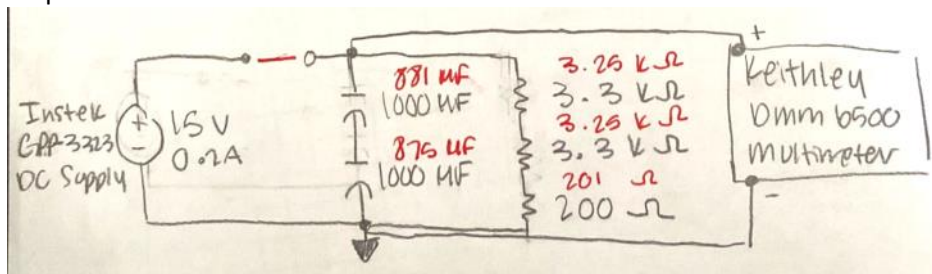 Instek
GPP-3323
DC Supply
+
-
15 V
0.2A
881 µF
1000 µF
875 µF
1000 µF
3.25 kΩ
3.3 kΩ
3.25 kΩ
3.3 kΩ
201 Ω
200 Ω
+
Keithley
Dmm 6500
multimeter
-